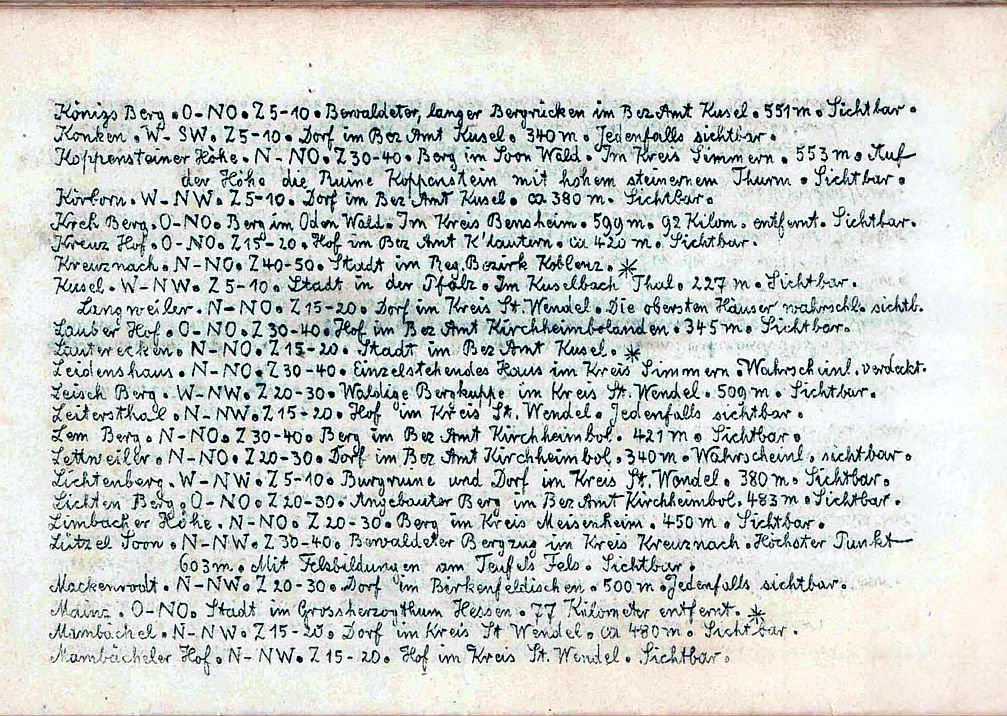 Königs Berg. O-NO. Z 5-10. Bewaldeter, langer Bergrücken im Bez Amt Kusel. 551 m. Sichtbar.
Konken. W-SW. Z 5-10. Dorf im Bez Amt Kusel. 340 m. Jedenfalls sichtbar.
Koppensteiner Höhe. N-NO. Z 30-40. Berg im Soon Wald. Im Kreis Simmern. 553 m. Auf
der Höhe die Ruine Koppenstein mit hohem steinernem Thurm. Sichtbar.
Körborn. W-NW. Z 5-10. Dorf im Bez Amt Kusel. ca 380 m. Sichtbar.
Kreh Berg. O-NO. Berg im Oden Wald. Im Kreis Bensheim. 599 m. 92 Kilom. entfernt. Sichtbar.
Kreuz Hof. O-NO. Z 15-20. Hof im Bez Amt K'lautern. ca 420 m. Sichtbar.
Kreuznach. N-NO. Z 40-50. Stadt im Reg. Bezirk Koblenz. *
Kusel. W-NW. Z 5-10. Stadt in der Pfalz. Im Kuselbach Thal. 227 m. Sichtbar.
Langweiler. N-NO. Z 15-20. Dorf im Kreis St. Wendel. Die obersten Häuser wahrschl. sichtb.
Lauber Hof. O-NO. Z 30-40. Hof im Bez Amt Kirchheimbolanden. 345 m. Sichtbar.
Lauterecken. N-NO. Z 15-20. Stadt im Bez Amt Kusel. *
Leidenshaus. N-NO. Z 30-40. Einzelstehendes Haus im Kreis Simmern. Wahrscheinl. verdekt.
Leisch Berg. W-NW. Z 20-30. Waldige Bergkuppe im Kreis St. Wendel. 509 m. Sichtbar.
Leitersthal. N-NW. Z 15-20. Hof im Kreis St. Wendel. Jedenfalls sichtbar.
Lem Berg. N-NO. Z 30-40. Berg im Bez Amt Kirchheimbol. 421 m. Sichtbar.
Lettweiler. N-NO. Z 20-30. Dorf im Bez Amt Kirchheimbol. 340 m. Wahrscheinl. sichtbar.
Lichtenberg. W-NW. Z 5-10. Burgruine und Dorf im Kreis St. Wendel. 380 m. Sichtbar.
Lichten Berg. O-NO. Z 20-30. Angebauter Berg im Bez Amt Kirchheimbol. 483 m. Sichtbar.
Limbacher Höhe. N-NO. Z 20-30. Berg im Kreis Meisenheim. 450 m. Sichtbar.
Lützel Soon. N-NW. Z 30-40. Bewaldeter Bergzug im Kreis Kreuznach. Höchster Punkt
603 m. Mit Felsbildungen am Teufels Fels. Sichtbar.
Mackenrodt. N-NW. Z 20-30. Dorf im Birkenfeldischen. 500 m. Jedenfalls sichtbar.
Mainz. O-NO. Stadt im Grossherzogthum Hessen. 77 Kilometer entfernt. *
Mambächel. N-NW. Z 15-20. Dorf im Kreis St Wendel. ca 480 m. Sichtbar.
Mambächeler Hof. N-NW. Z 15-20. Hof im Kreis St. Wendel. Sichtbar.